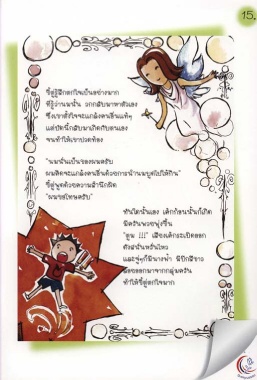 15.
ขี้ตู่รู้สึกตกใจเป็นอย่างมาก
ที่รู้ว่านมนั้น วกกลับมาหาตัวเอง
ซึ่งเขาตั้งใจจะแกล้งคนอื่นแท้ๆ
แต่บัดนี้กลับมาเกิดกับตนเอง
จนทำให้เขาปวดท้อง
"นมนั่นเป็นของผมครับ
ผมคิดจะแกล้งคนอื่นด้วยการนำนมบูดไปให้กิน"
ขี้ตู่พูดด้วยความสำนึกผิด
"ผมขอโทษครับ"
ทันใดนั้นเอง เด็กก้อนนั้นก็เกิด
มีควันพวยพุ่งขึ้น
"ตูม !!!" เสียงเด็กระเบิดออก
ตัวสั่นหวั่นไหว
และจู่ๆก็มีนางฟ้า มีปีกสีขาว
ลอยออกมาจากกลุ่มควัน
ทำให้ขี้ตู่ตกใจมาก